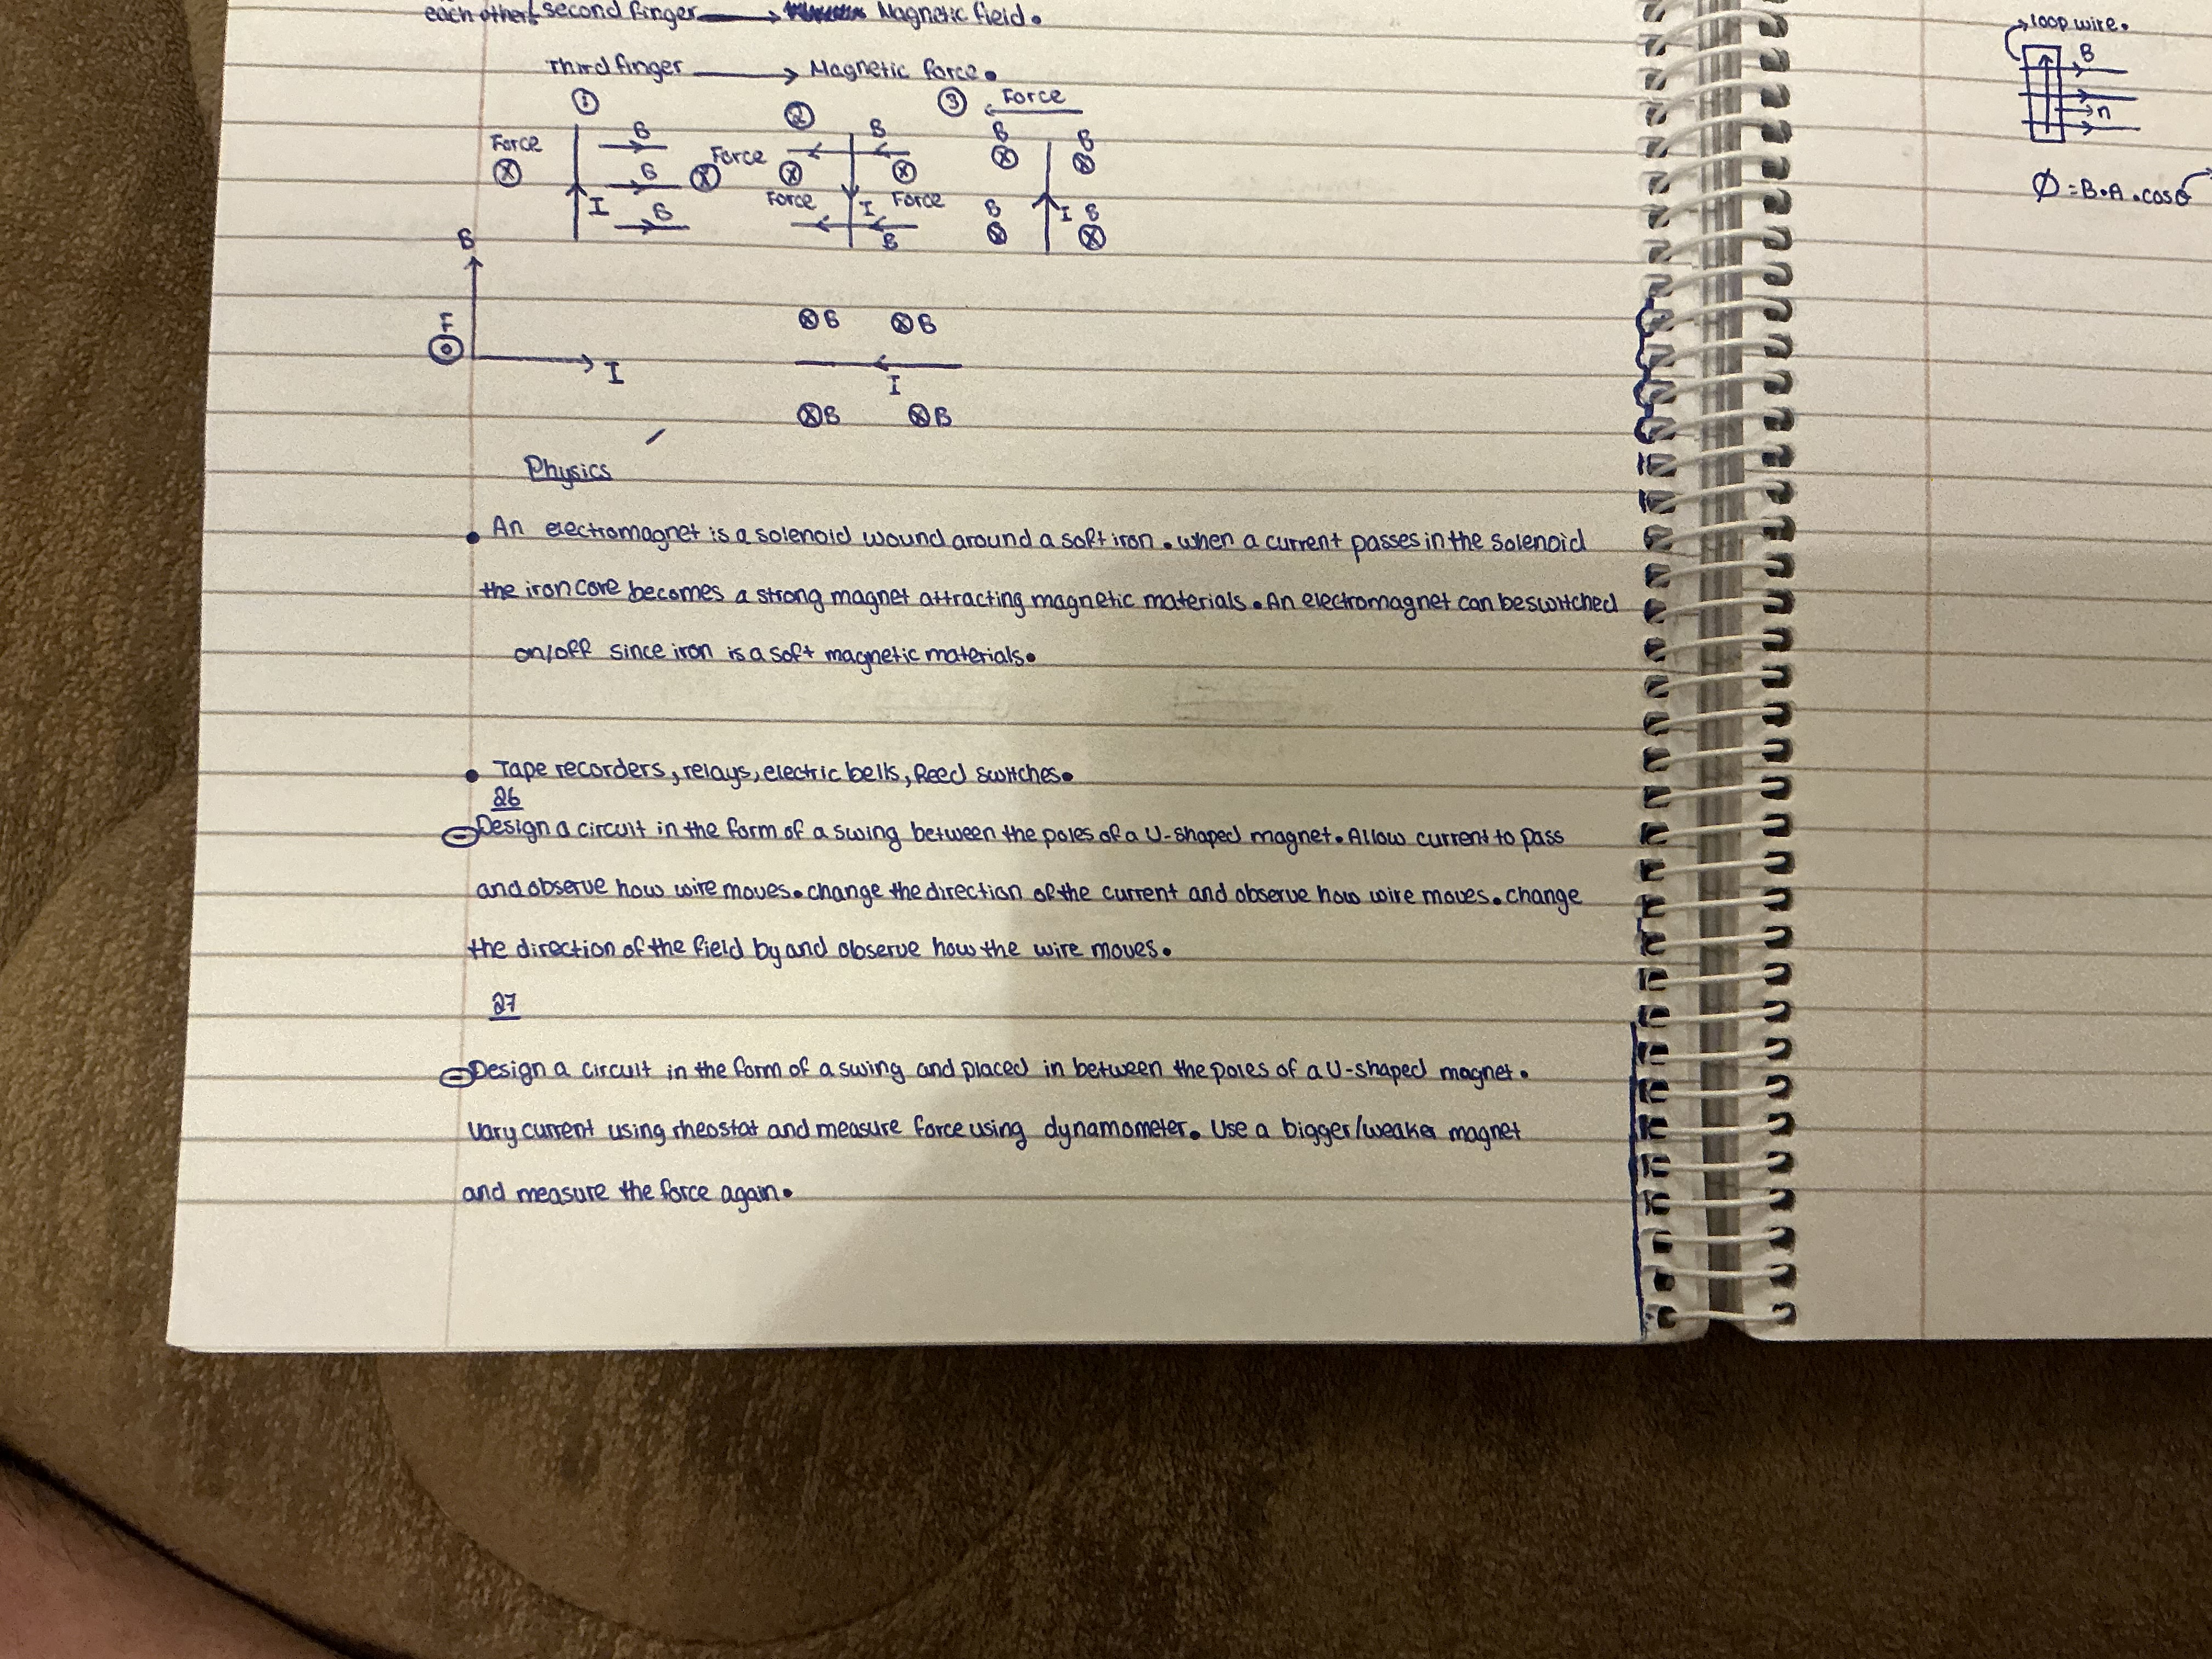 each other. second finger → Magnetic field.
Third finger → Magnetic force.
① ② ③ Force
Force B Force B B B
B I B Force I Force B B I B
B
F
I
B B
I
B B
Physics
• An electromagnet is a solenoid wound around a soft iron. when a current passes in the solenoid
the iron core becomes a strong magnet attracting magnetic materials. An electromagnet can be switched
on/off since iron is a soft magnetic materials.
• Tape recorders, relays, electric bells, Reed switches.
26
Design a circuit in the form of a swing between the poles of a U-shaped magnet. Allow current to pass
and observe how wire moves. change the direction of the current and observe how wire moves. change
the direction of the field by and observe how the wire moves.
27
Design a circuit in the form of a swing and placed in between the poles of a U-shaped magnet.
vary current using rheostat and measure force using dynamometer. Use a bigger/weaker magnet
and measure the force again.
loop wire.
B
n
Ø = B.A.cosθ